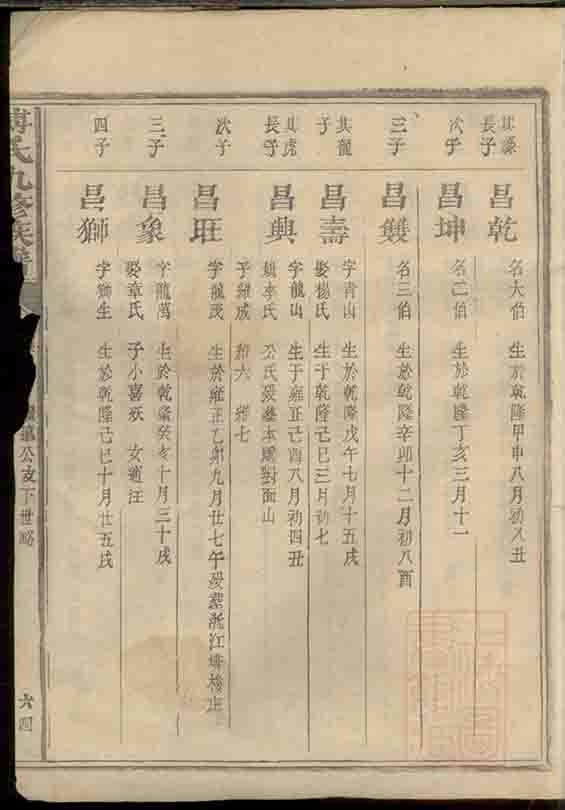 長子
昌乾
名大伯 生於乾隆甲申八月初八丑
次子
昌坤
名二伯 生於乾隆丁亥三月十一
三子
昌雙
名三伯 生於乾隆辛卯十二月初八酉
其龍
子
昌壽
字青山 生於乾隆戊午七月十五戌
娶楊氏 生于乾隆己巳三月初七
其虎
長子
昌興
字龍山 生于雍正己酉八月初四丑
李氏 公氏歿葬本處對面山
子 成 六 七
次子
昌旺
字龍茂 生於雍正乙卯九月廿七午歿葬 江
三子
昌象
字龍萬 生於乾隆癸亥十月三十戌
娶章氏 子小喜歿 女適汪
四子
昌獅
字獅生 生於乾隆己巳十月廿五戌
氏九修族譜
公支下世略
六四